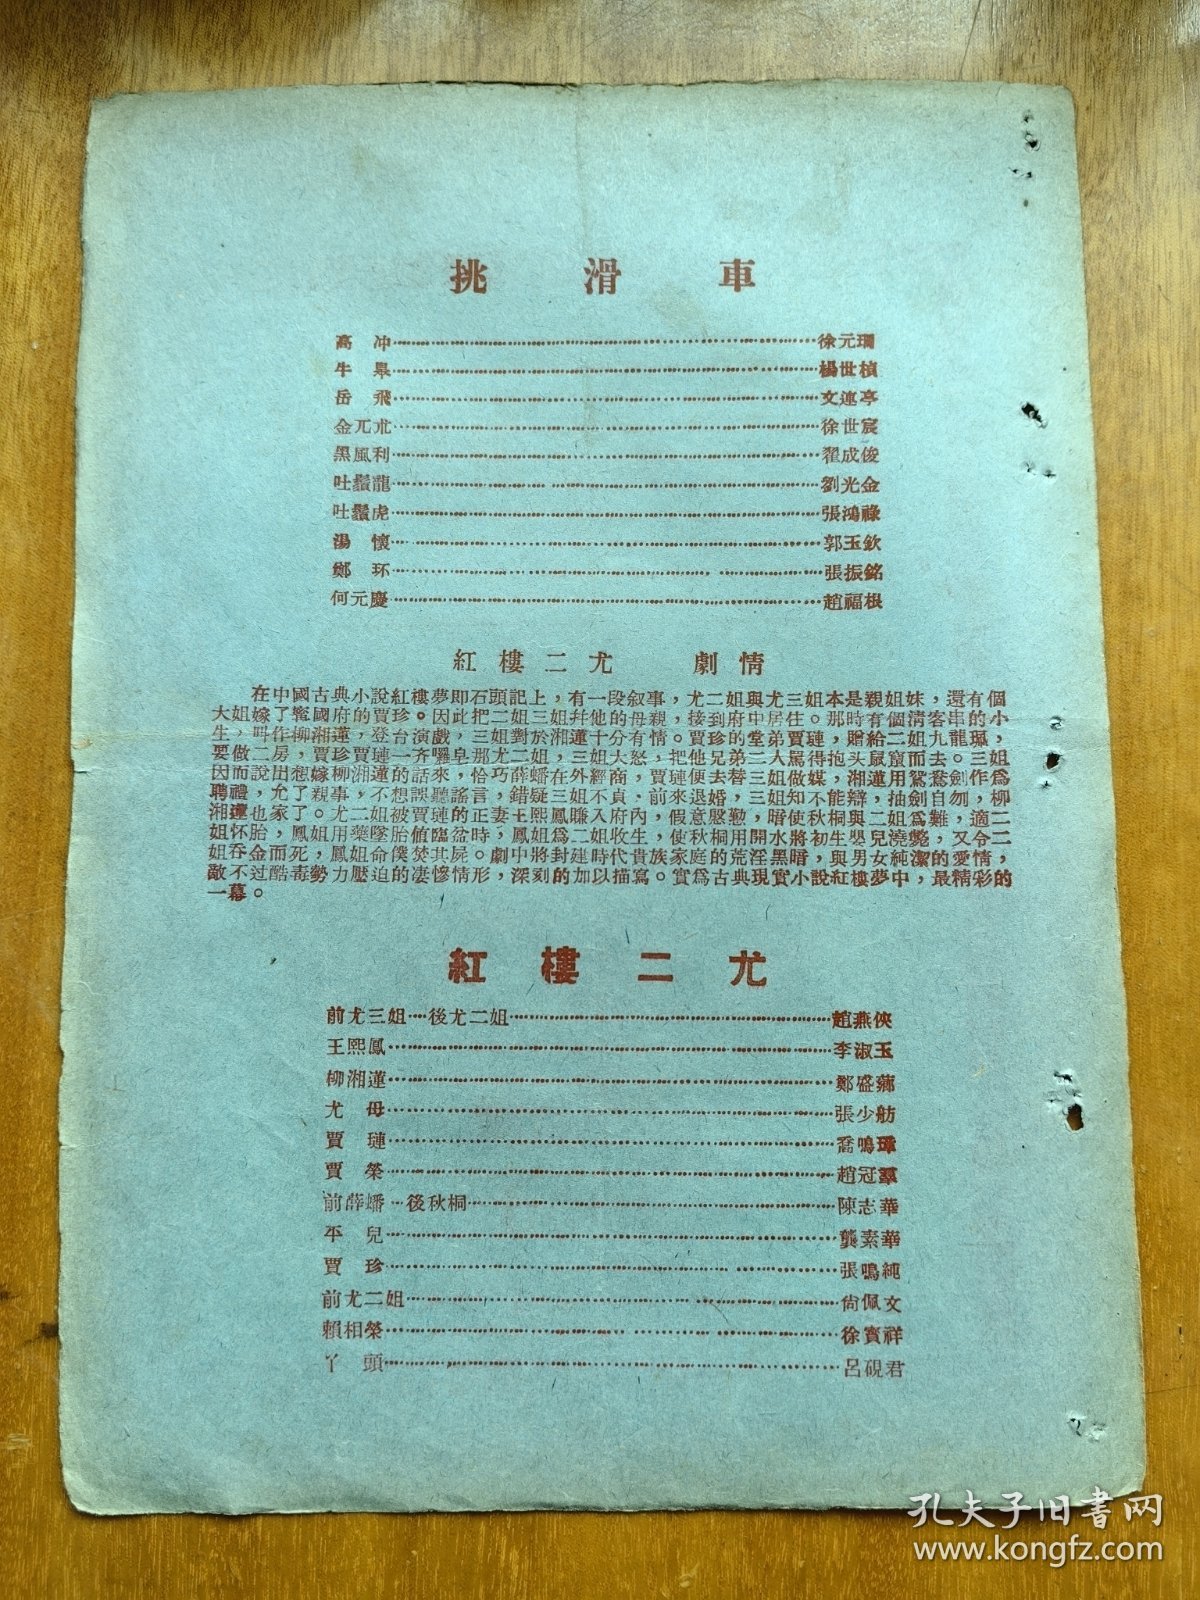 挑滑車
高冲……徐元珊
牛臯……楊世楨
岳飛……文連亭
金兀朮……徐世宸
黑風利……翟成俊
吐鬚龍……劉光金
吐鬚虎……張鴻祿
湯懷……郭玉欽
鄭环……張振銘
何元慶……趙福根
紅樓二尤 劇情
在中國古典小說紅樓夢即石頭記上，有一段叙事，尤二姐與尤三姐本是親姐妹，還有個
大姐嫁了寗國府的賈珍。因此把二姐三姐幷他的母親，接到府中居住。那時有個清客串的小
生，叫作柳湘蓮，登台演戲，三姐對於湘蓮十分有情。賈珍的堂弟賈璉，贈給二姐九龍珮，
要做二房，賈珍賈璉一齊囉皂那尤二姐，三姐大怒，把他兄弟二人駡得抱头鼠竄而去。三姐
因而說出想嫁柳湘蓮的話來，恰巧薛蟠在外經商，賈璉便去替三姐做媒，湘蓮用鴛鴦劍作爲
聘禮，允了親事，不想誤聽謠言，錯疑三姐不貞，前來退婚，三姐知不能辯，抽劍自刎，柳
湘蓮也家了。尤二姐被賈璉的正妻王熙鳳賺入府內，假意慇懃，暗使秋桐與二姐爲難，適二
姐怀胎，鳳姐用藥墜胎値臨盆時，鳳姐爲二姐收生，使秋桐用開水將初生嬰兒澆斃，又令二
姐吞金而死，鳳姐命僕焚其屍。劇中將封建時代貴族家庭的荒淫黑暗，與男女純潔的愛情，
敵不过酷毒勢力壓迫的凄慘情形，深刻的加以描寫。實爲古典現實小說紅樓夢中，最精彩的
一幕。
紅樓二尤
前尤三姐…後尤二姐……趙燕俠
王熙鳳……李淑玉
柳湘蓮……鄭盛
尤母……張少舫
賈璉……喬鳴
賈榮……趙冠羣
前薛蟠…後秋桐……陳志華
平兒……龔素華
賈珍……張鳴純
前尤二姐……尙佩文
賴相榮……徐寳祥
丫頭……呂硯君
孔夫子旧书网
www.kongfz.com